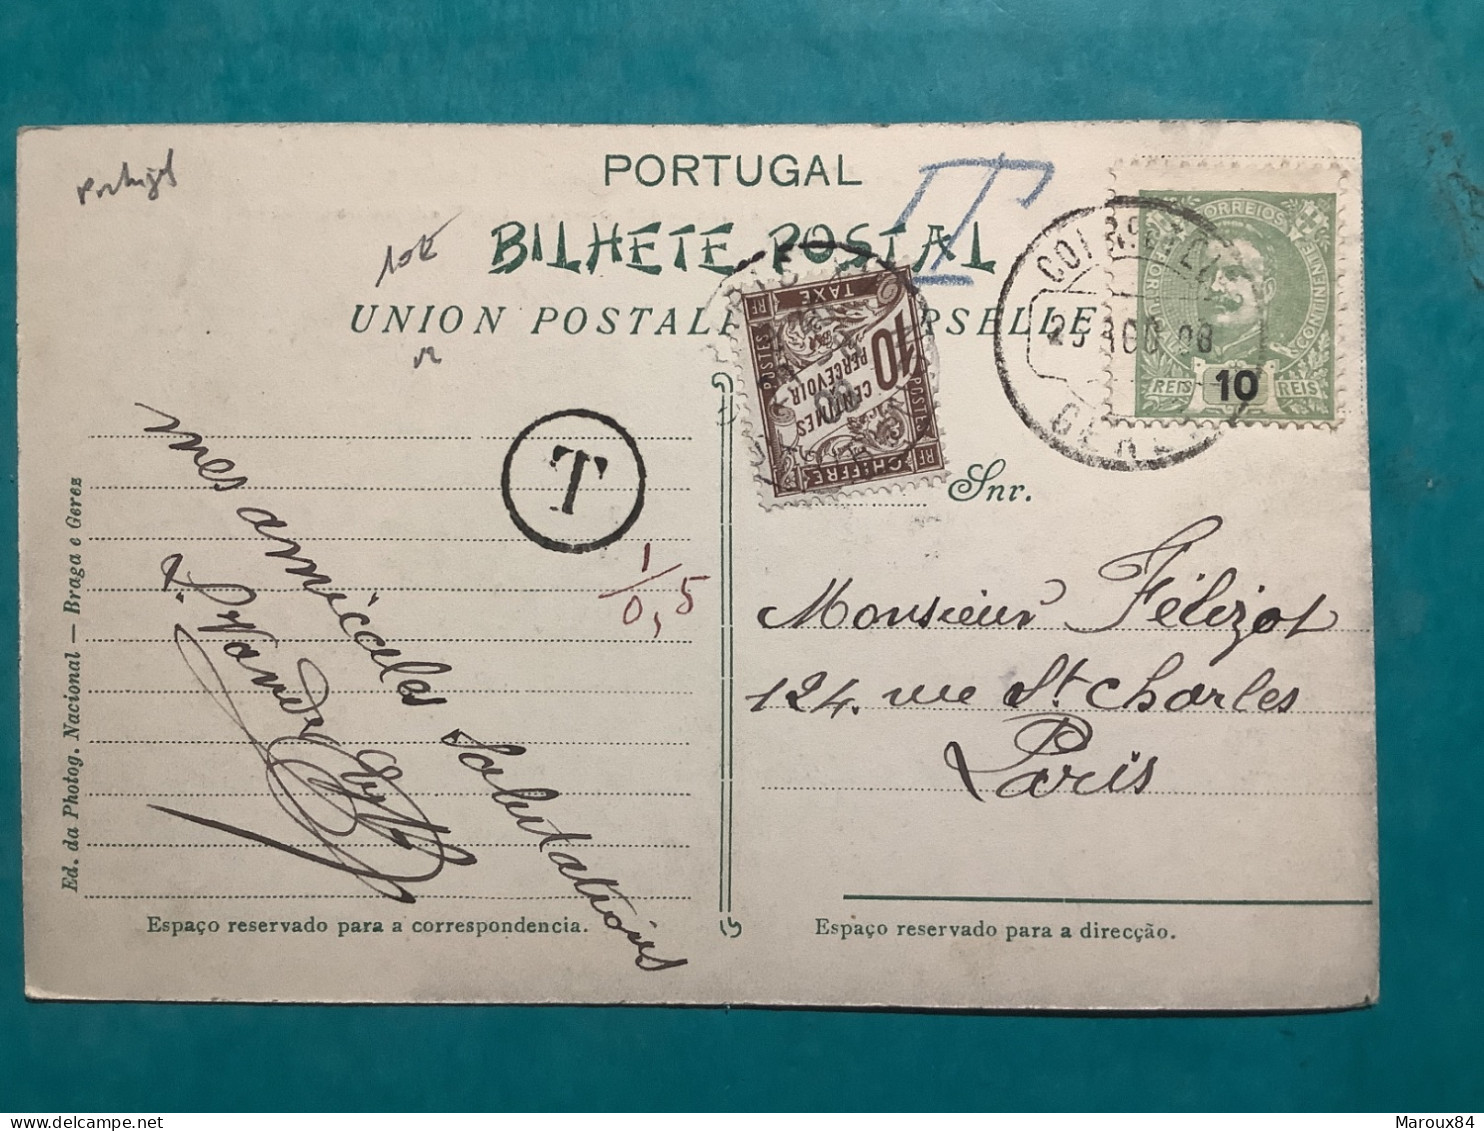 Portugal
PORTUGAL
T
BILHETE POSTAL
10€
UNION POSTALE
RSELLE
CORREIOS
CONTINENTE
REIS 10 REIS
25 AGO 08
GEREZ
TAXE
RF
POSTES
10
CENTIMES
PERCEVOIR
POSTES
RF
CHIFFRE
T
1/0,5
mes amicales salutations
Snr.
Monsieur Félizot
124. rue St. Charles
Paris
Ed. da Photog. Nacional — Braga e Gerez
Espaço reservado para a correspondencia.
Espaço reservado para a direcção.
Maroux84